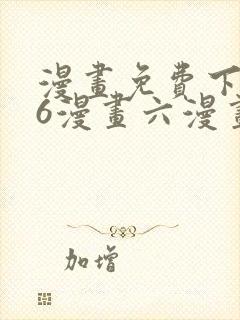 漫畫免費下
6漫畫六漫畫
加增